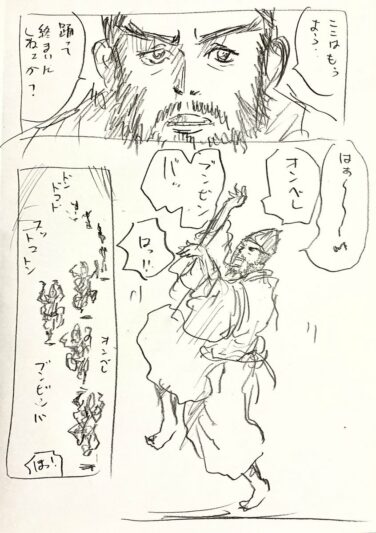 ここはもう
よう…
踊って
終まいに
しねえか?
はぁ〜〜〜
オンベレ
ブンビン
バッ
ロッ!!
ドン
ドドンド
スッ
トントントン
オンベレ
ブンビンバ
はっ!